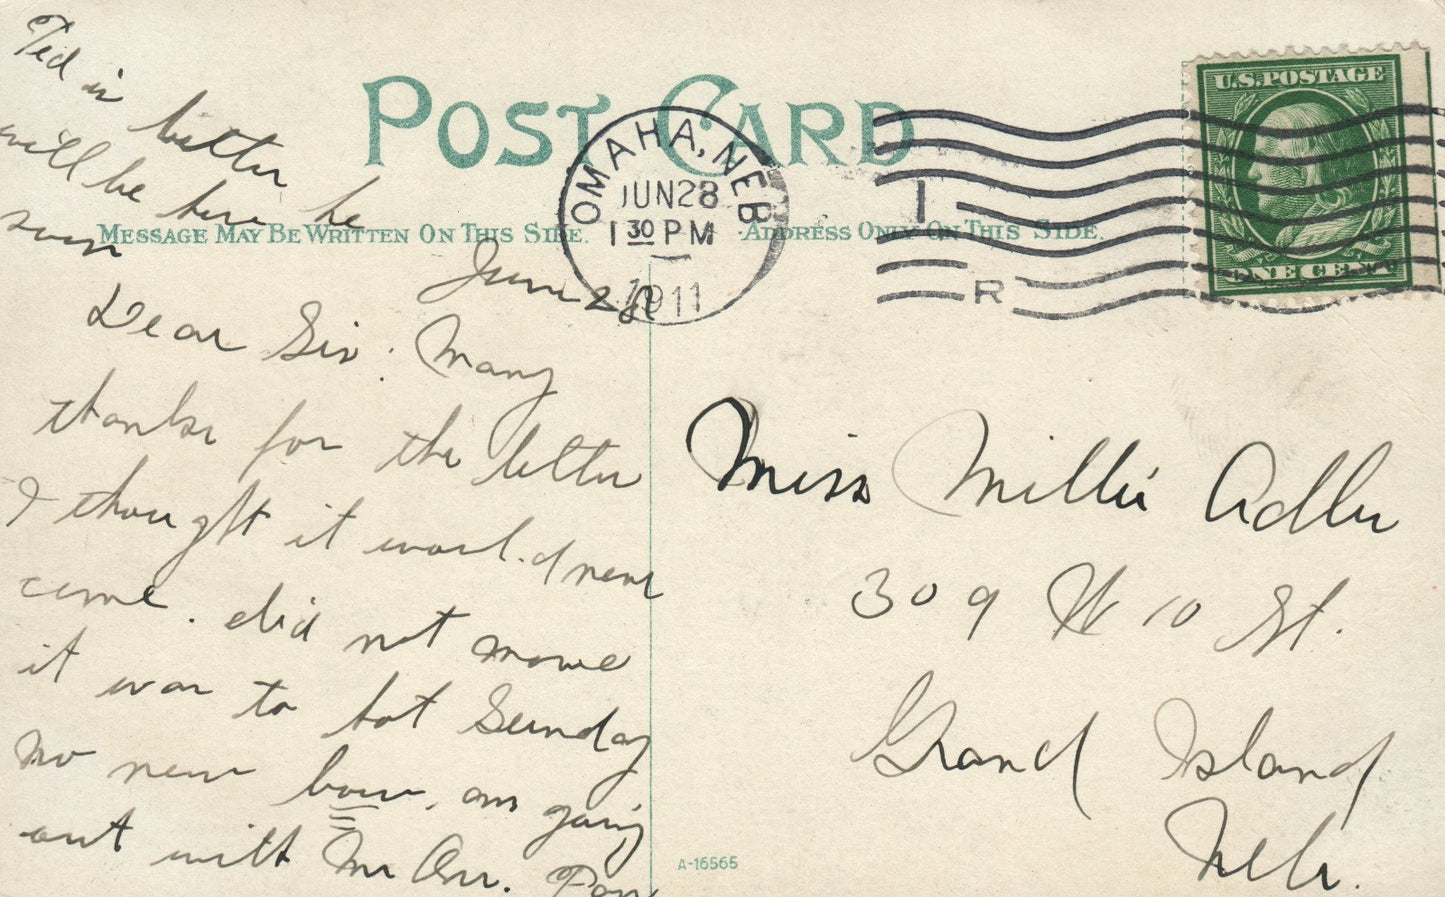 Ted is better
will be here he
soon
POST CARD
MESSAGE MAY BE WRITTEN ON THIS SIDE.
ADDRESS ONLY ON THIS SIDE.
OMAHA, NEB
JUN 28
1 30 PM
1911
1
R
U.S. POSTAGE
ONE CENT
June 28
Dear Sir: Many
thanks for the letter
I thought it would never
come. did not move
it was to hot Sunday
no new beau. am going
out with Mr
Miss Millie Adler
309 W 10 St.
Grand Island
Neb.
A-16565